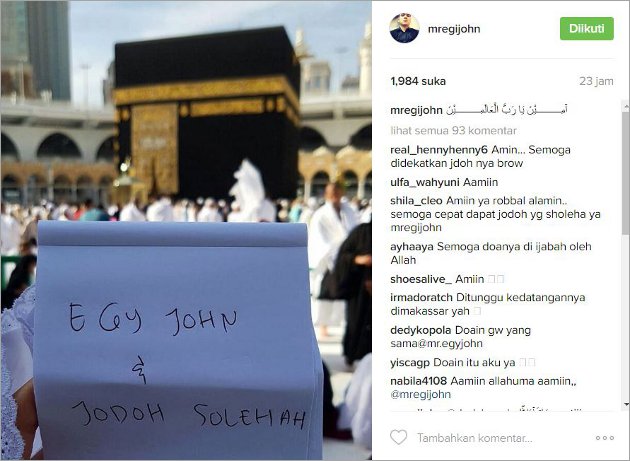 EGY JOHN
&
JODOH SOLEHAH
mregijohn
Diikuti
1,984 suka
23 jam
mregijohn آمِـــــيْن يَا رَبَّ الْعَالَمِــــــيْنَ
lihat semua 93 komentar
real_hennyhenny6 Amin... Semoga
didekatkan jdoh nya brow
ulfa_wahyuni Aamiin
shila_cleo Amiin ya robbal alamin..
semoga cepat dapat jodoh yg sholeha ya
mregijohn
ayhaaya Semoga doanya di ijabah oleh
Allah
shoesalive_ Amiin
irmadoratch Ditunggu kedatangannya
dimakassar yah
dedykopola Doain gw yang
sama@mr.egyjohn
yiscagp Doain itu aku ya
nabila4108 Aamiin allahuma aamiin,,
@mregijohn
Tambahkan komentar...